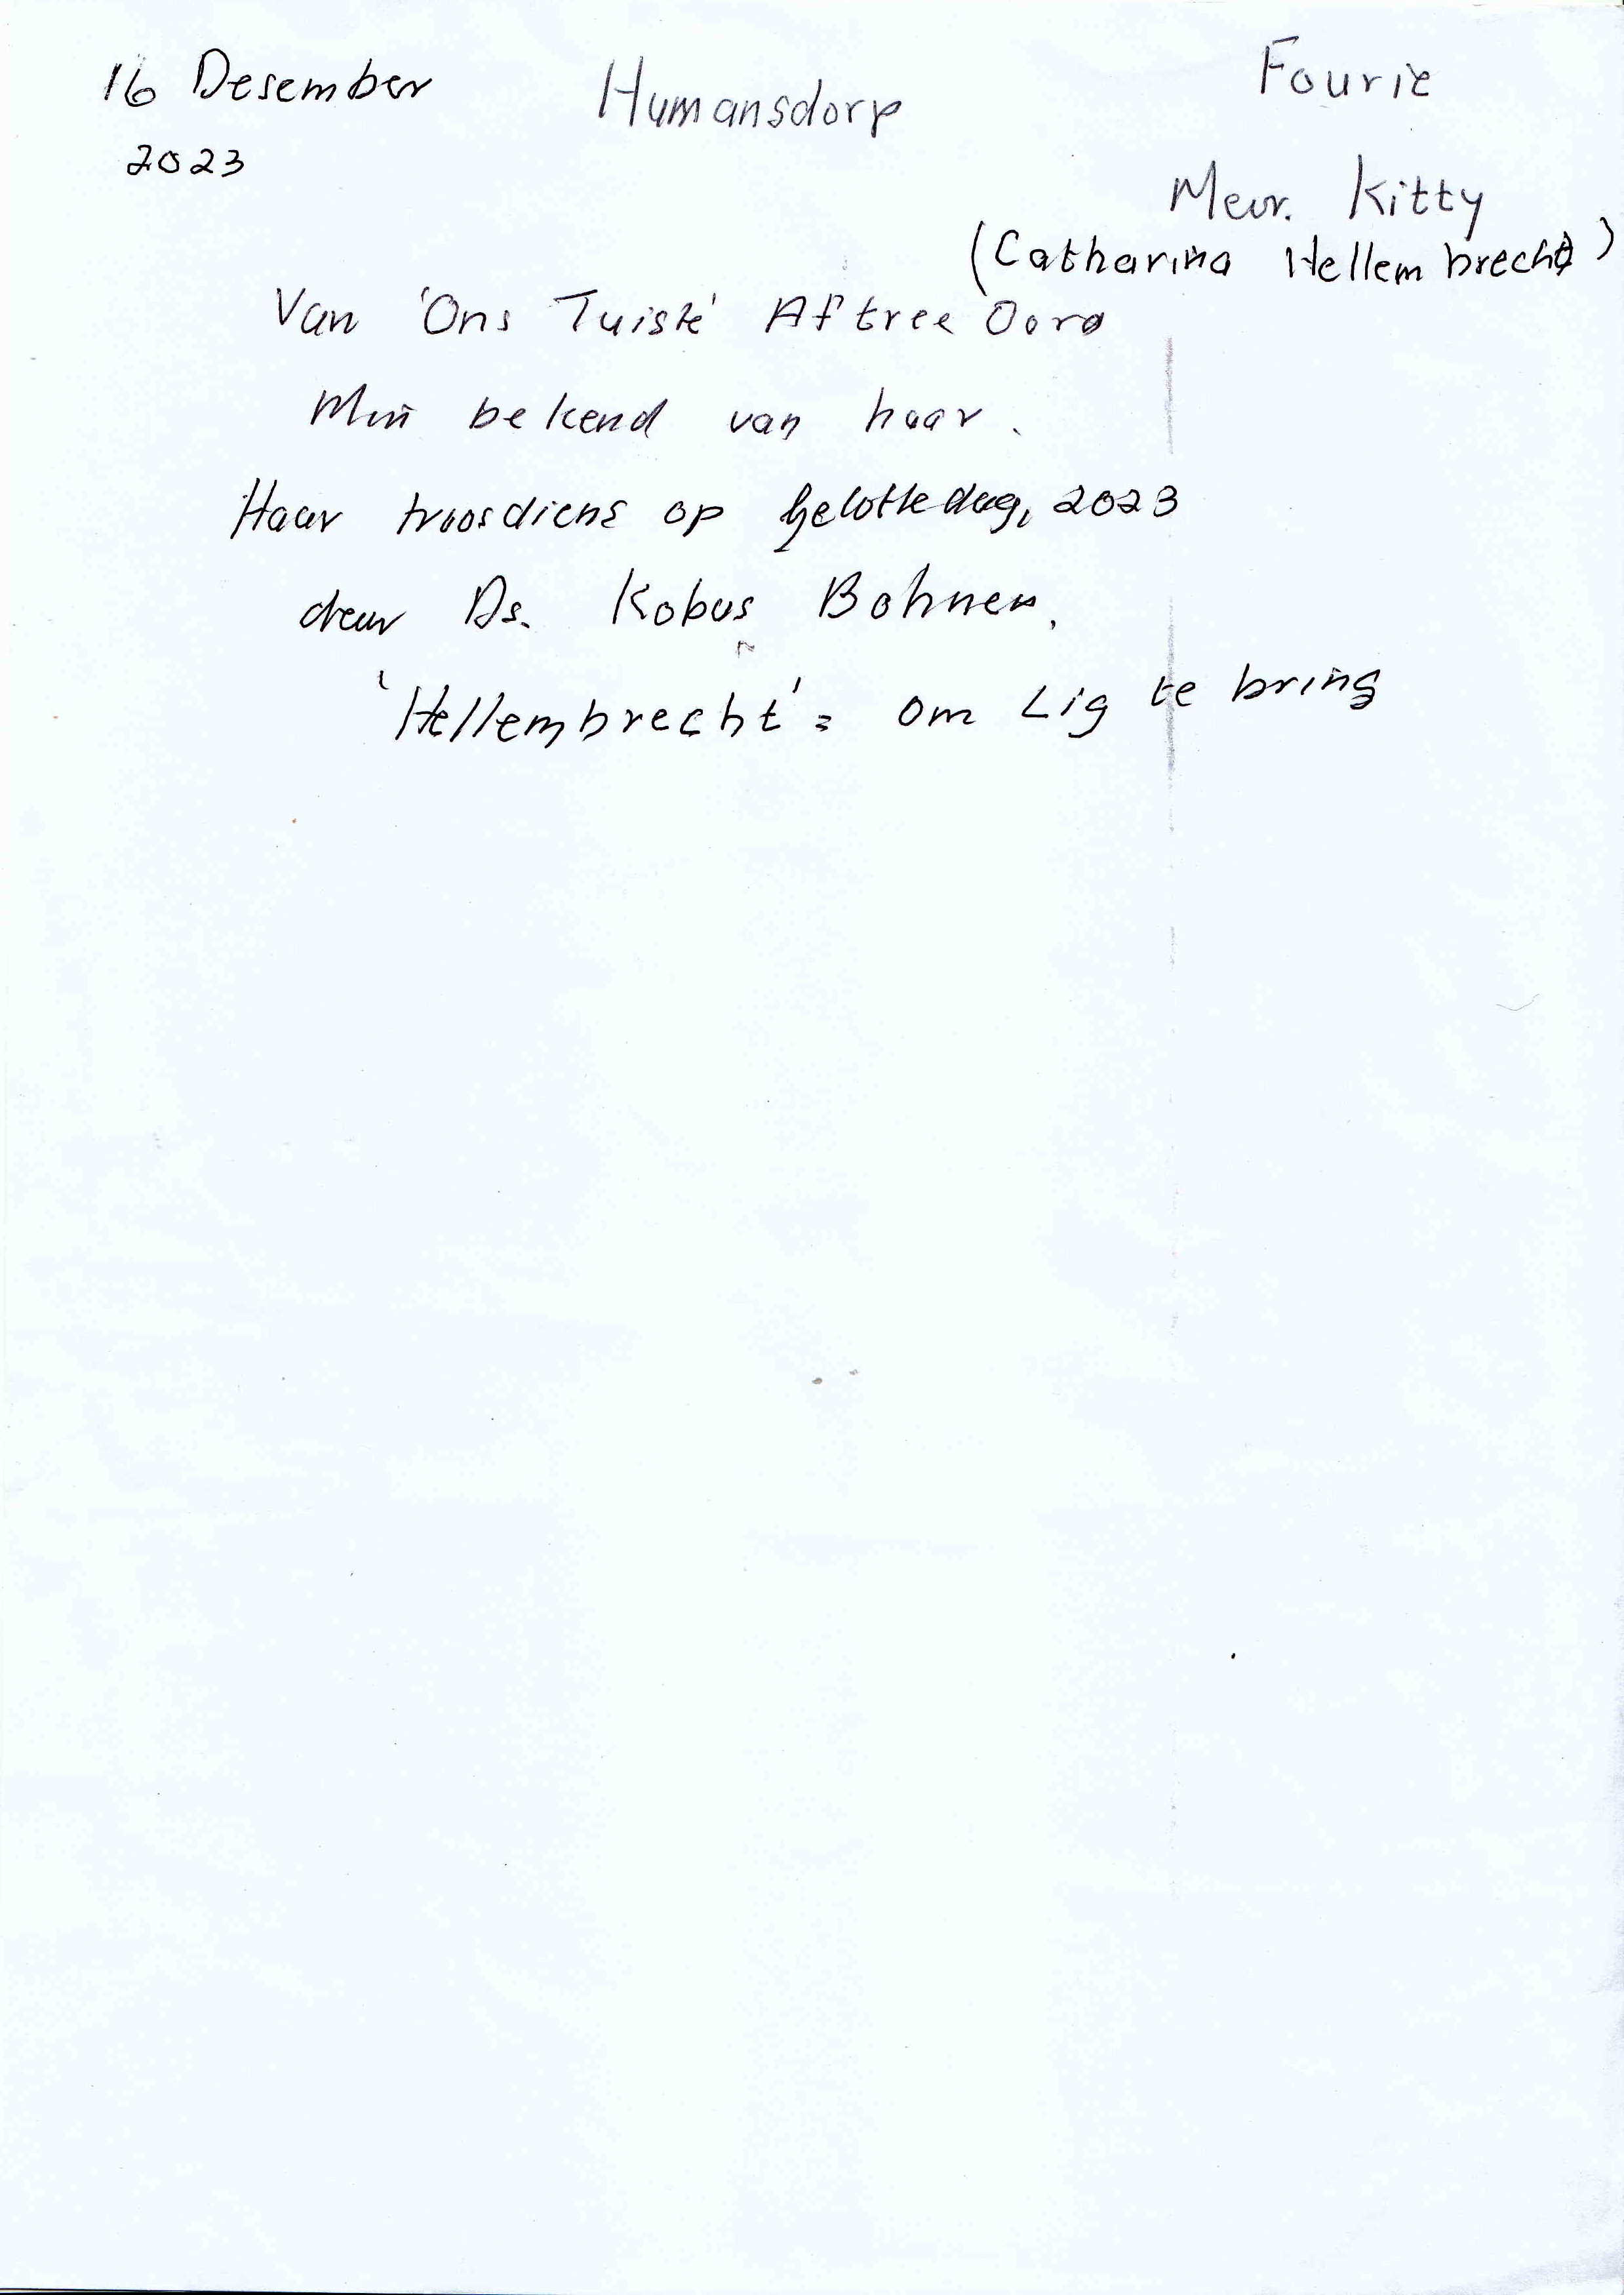 16 Desember Humansdorp Fourie
2023
Mevr. Kitty
(Catharina Hellembrecht)
Van 'Ons Tuiste' Aftree Oord
Min bekend van haar.
Haar troosdiens op Geloftedag, 2023
deur Ds. Kobus Bohnen.
'Hellembrecht' = om Lig te bring